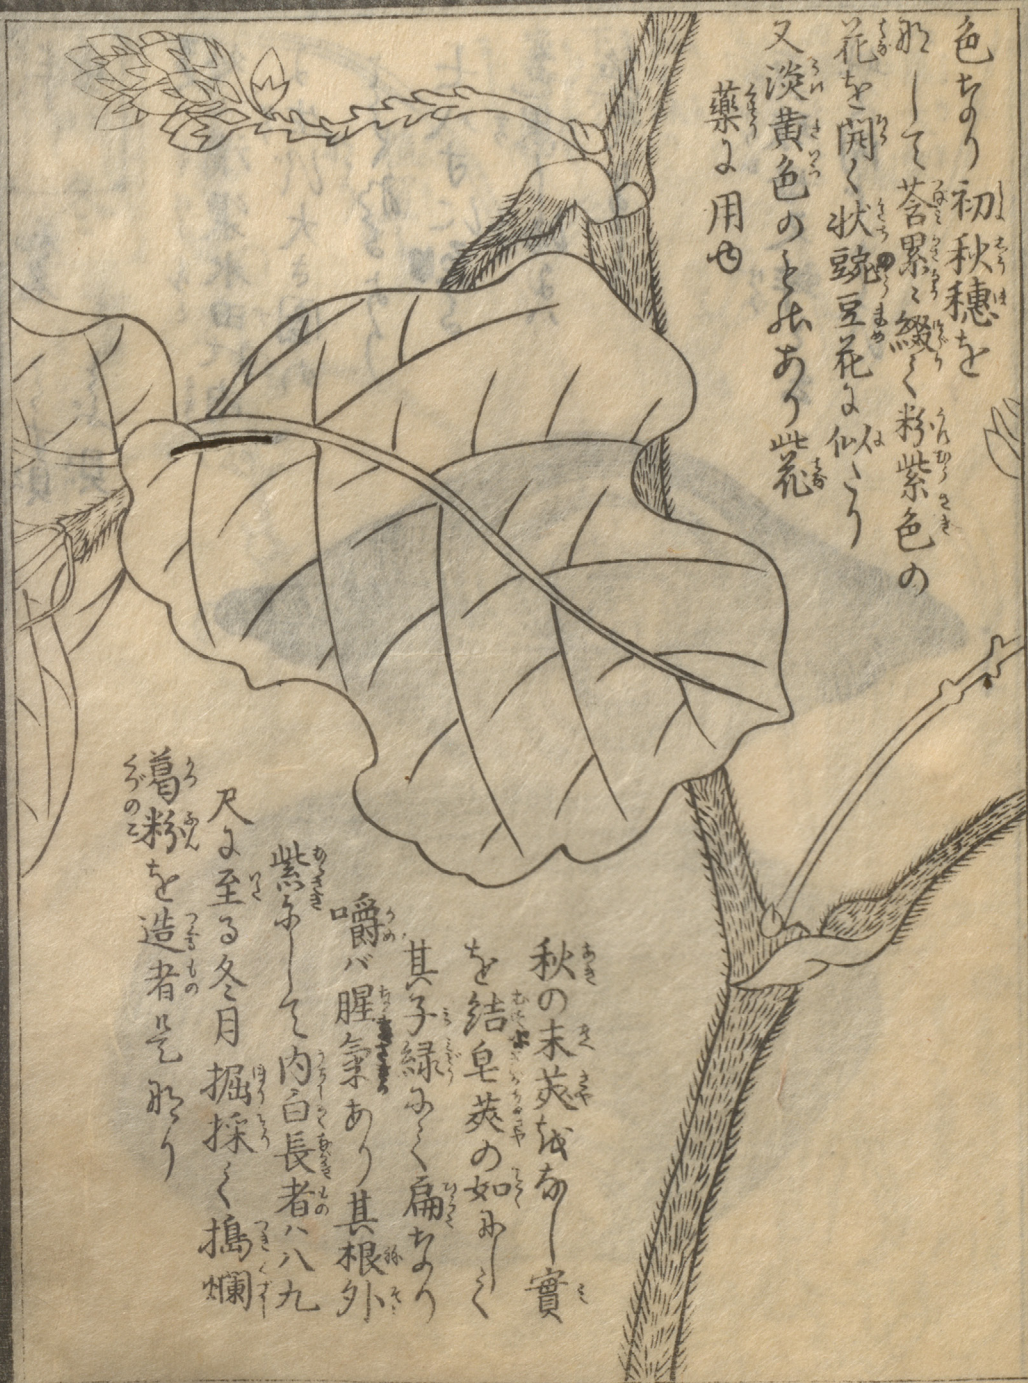 色なり初秋穗を
那して荅累〻綴く粉紫色の
花を開く状豌豆花に似たり
又淡黄色のもあり此花
藥に用ゆ
秋の末莢をなし實
を結皂莢の如にして
其子緑にして扁なり
嚼バ腥氣あり其根外
紫にして内白長者ハ八九
尺に至る冬月掘採て搗爛
葛粉を造者是那り